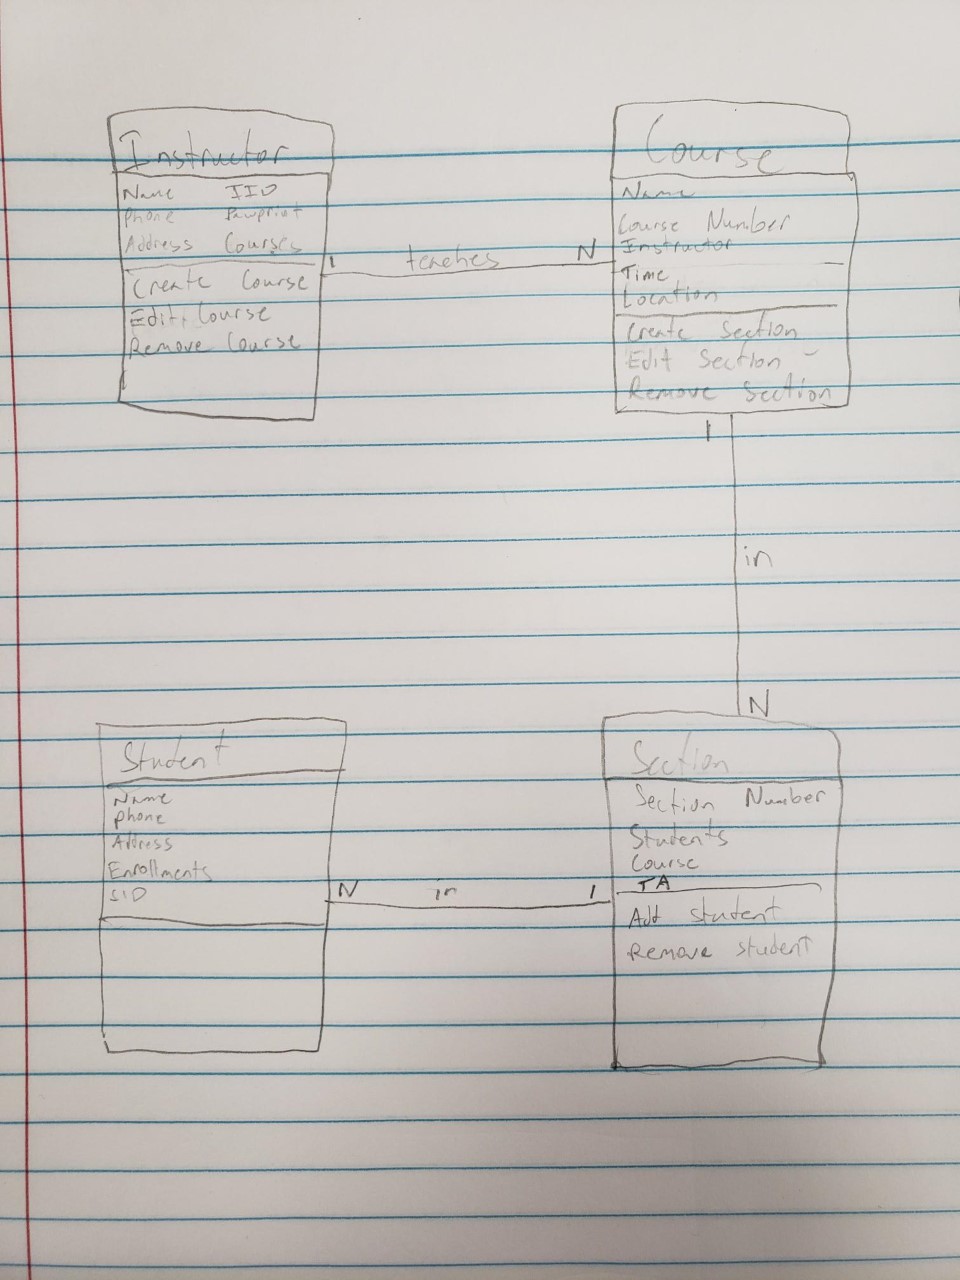 Instructor
Name IID
Phone Pawprint
Address Courses
Create Course
Edit Course
Remove Course
1 teaches N
Course
Name
Course Number
Instructor
Time
Location
Create Section
Edit Section
Remove Section
1
in
N
Student
Name
Phone
Address
Enrollments
SID
N in 1
Section
Section Number
Students
Course
TA
Add student
Remove student